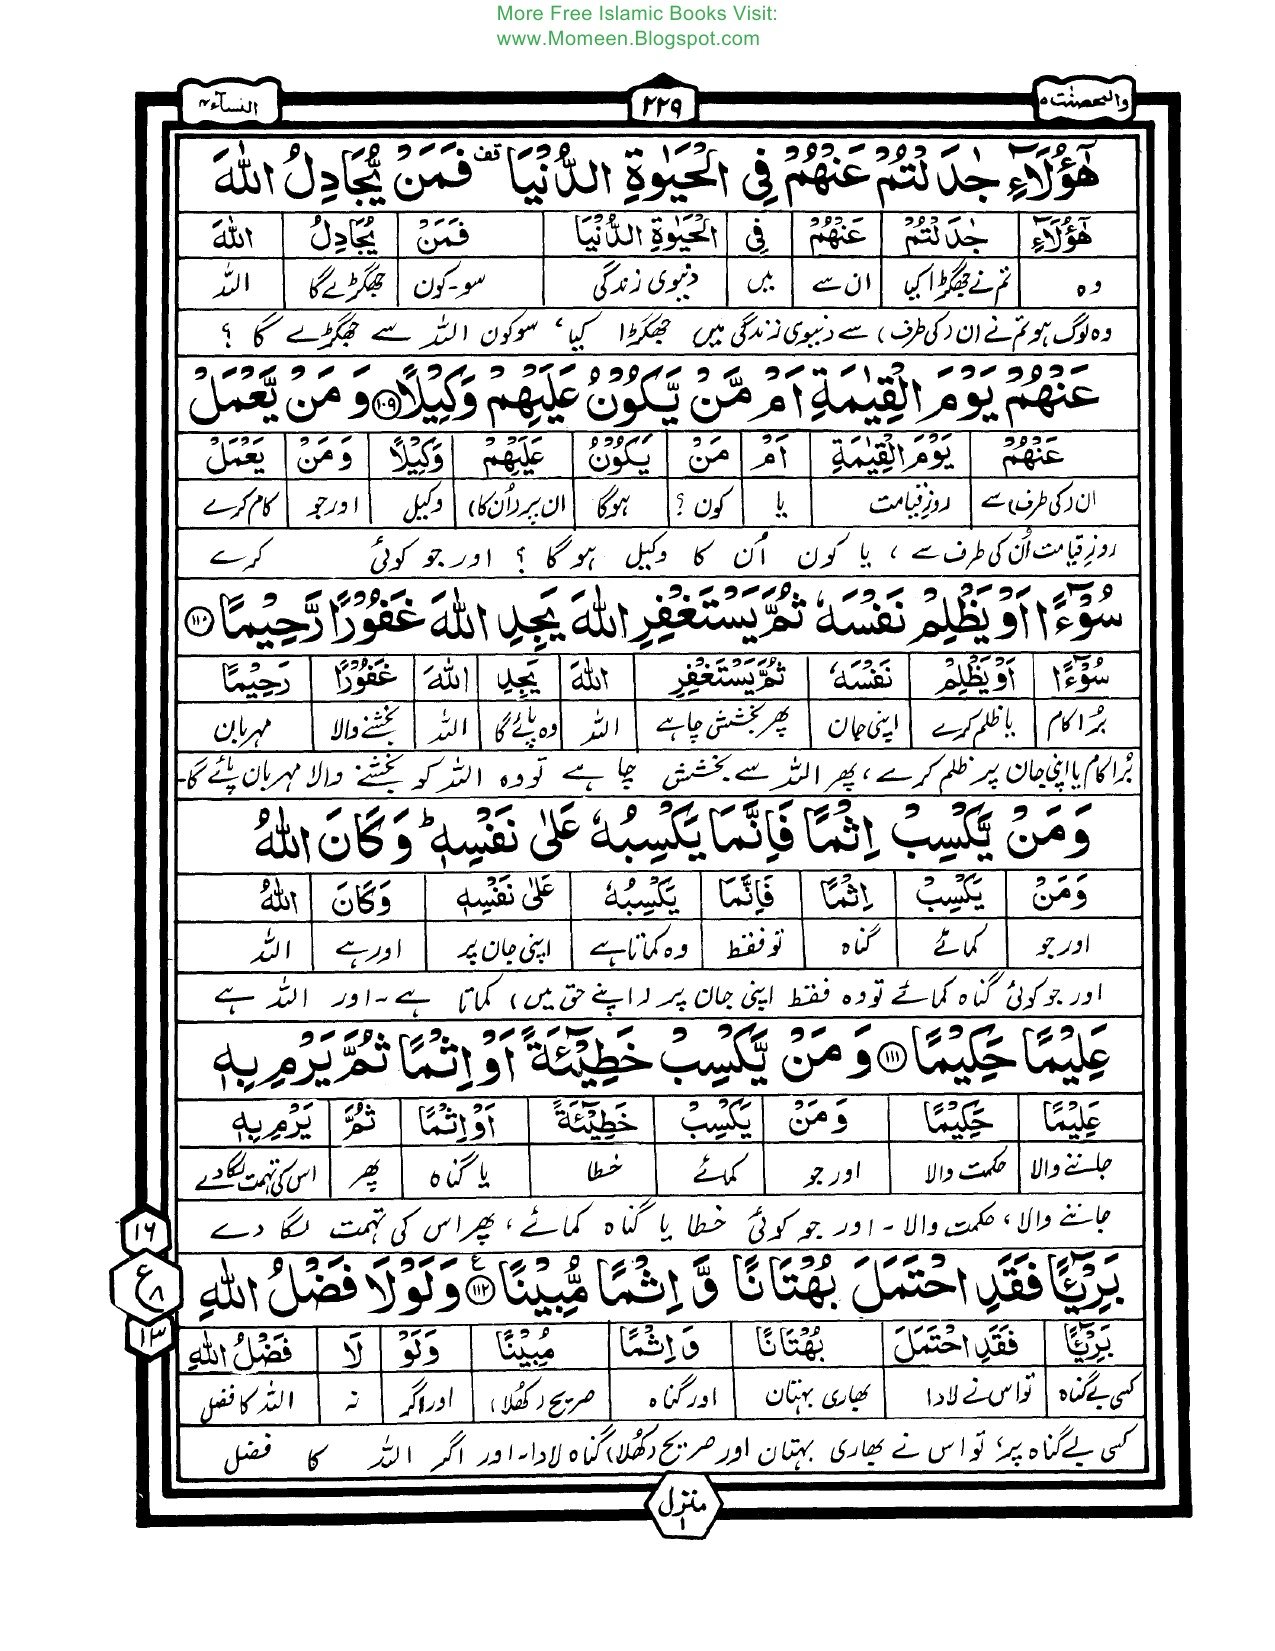 More Free Islamic Books Visit:
www.Momeen.Blogspot.com
والمحصنٰت ۵ ۲۲۹ النسآء ۴
هٰٓؤُلَآءِ جٰدَلْتُمْ عَنْهُمْ فِی الْحَیٰوةِ الدُّنْیَا قف فَمَنْ یُّجَادِلُ اللّٰهَ
هٰٓؤُلَآءِ جٰدَلْتُمْ عَنْهُمْ فِی الْحَیٰوةِ الدُّنْیَا فَمَنْ یُّجَادِلُ اللّٰهَ
وہ تم نے جھگڑا کیا ان سے میں دنیوی زندگی سو۔کون جھگڑے گا اللہ
وہ لوگ ہو تم نے ان (کی طرف) سے دنیوی زندگی میں جھگڑا کیا، سو کون اللہ سے جھگڑے گا ؟
عَنْهُمْ یَوْمَ الْقِیٰمَةِ اَمْ مَّنْ یَّكُوْنُ عَلَیْهِمْ وَكِیْلًا ۱۰۹ وَ مَنْ یَّعْمَلْ
عَنْهُمْ یَوْمَ الْقِیٰمَةِ اَمْ مَنْ یَكُوْنُ عَلَیْهِمْ وَكِیْلًا وَ مَنْ یَعْمَلْ
ان (کی طرف) سے روزِ قیامت یا کون ؟ ہوگا ان پر (اُن کا) وکیل اور جو کام کرے
روزِ قیامت اُن کی طرف سے ، یا کون اُن کا وکیل ہوگا ؟ اور جو کوئی کرے
سُوْٓءًا اَوْ یَظْلِمْ نَفْسَهٗ ثُمَّ یَسْتَغْفِرِ اللّٰهَ یَجِدِ اللّٰهَ غَفُوْرًا رَّحِیْمًا ۱۱۰
سُوْٓءًا اَوْ یَظْلِمْ نَفْسَهٗ ثُمَّ یَسْتَغْفِرِ اللّٰهَ یَجِدِ اللّٰهَ غَفُوْرًا رَحِیْمًا
بُرا کام یا ظلم کرے اپنی جان پھر بخشش چاہے اللہ وہ پائے گا اللہ بخشنے والا مہربان
بُرا کام یا اپنی جان پر ظلم کرے، پھر اللہ سے بخشش چاہے تو وہ اللہ کو بخشنے والا مہربان پائے گا۔
وَ مَنْ یَّكْسِبْ اِثْمًا فَاِنَّمَا یَكْسِبُهٗ عَلٰی نَفْسِهٖ ؕ وَ كَانَ اللّٰهُ
وَمَنْ یَكْسِبْ اِثْمًا فَاِنَّمَا یَكْسِبُهٗ عَلٰی نَفْسِهٖ وَكَانَ اللّٰهُ
اور جو کمائے گناہ تو فقط وہ کماتا ہے اپنی جان پر اور ہے اللہ
اور جو کوئی گناہ کمائے تو وہ فقط اپنی جان پر (اپنے حق میں) کماتا ہے۔ اور اللہ ہے
عَلِیْمًا حَكِیْمًا ۱۱۱ وَ مَنْ یَّكْسِبْ خَطِیْٓئَةً اَوْ اِثْمًا ثُمَّ یَرْمِ بِهٖ
عَلِیْمًا حَكِیْمًا وَ مَنْ یَكْسِبْ خَطِیْٓئَةً اَوْ اِثْمًا ثُمَّ یَرْمِ بِهٖ
جاننے والا حکمت والا اور جو کمائے خطا یا گناہ پھر اس کی تہمت لگا دے
جاننے والا، حکمت والا ۔ اور جو کوئی خطا یا گناہ کمائے، پھر اس کی تہمت لگا دے
۱۶
ع
۸
۱۳
بَرِیْٓئًا فَقَدِ احْتَمَلَ بُهْتَانًا وَّ اِثْمًا مُّبِیْنًا ۱۱۲ ع وَ لَوْ لَا فَضْلُ اللّٰهِ
بَرِیْٓئًا فَقَدِ احْتَمَلَ بُهْتَانًا وَاِثْمًا مُبِیْنًا وَلَوْ لَا فَضْلُ اللّٰهِ
کسی بے گناہ تو اس نے لادا بھاری بہتان اور گناہ صریح (کھلا) اور اگر نہ اللہ کا فضل
کسی بے گناہ پر، تو اس نے بھاری بہتان اور صریح (کھلا) گناہ لادا۔ اور اگر اللہ کا فضل
منزل
۱